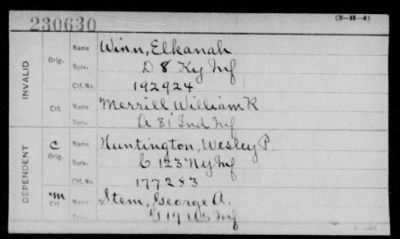 230630
(3-H-4)
INVALID
Orig.
Name
Winn, Elkanah
Serv.
D 8 Ky Inf
Ctf. No.
192924
Ctf.
Name
Merrill William R.
Serv.
A 81 Ind Inf
DEPENDENT
C
Orig.
Name
Huntington, Wesley P.
Serv.
C 123 Ny Inf
Ctf. No.
177283
M
Ctf.
Name
Item, George A.
Serv.
Inf